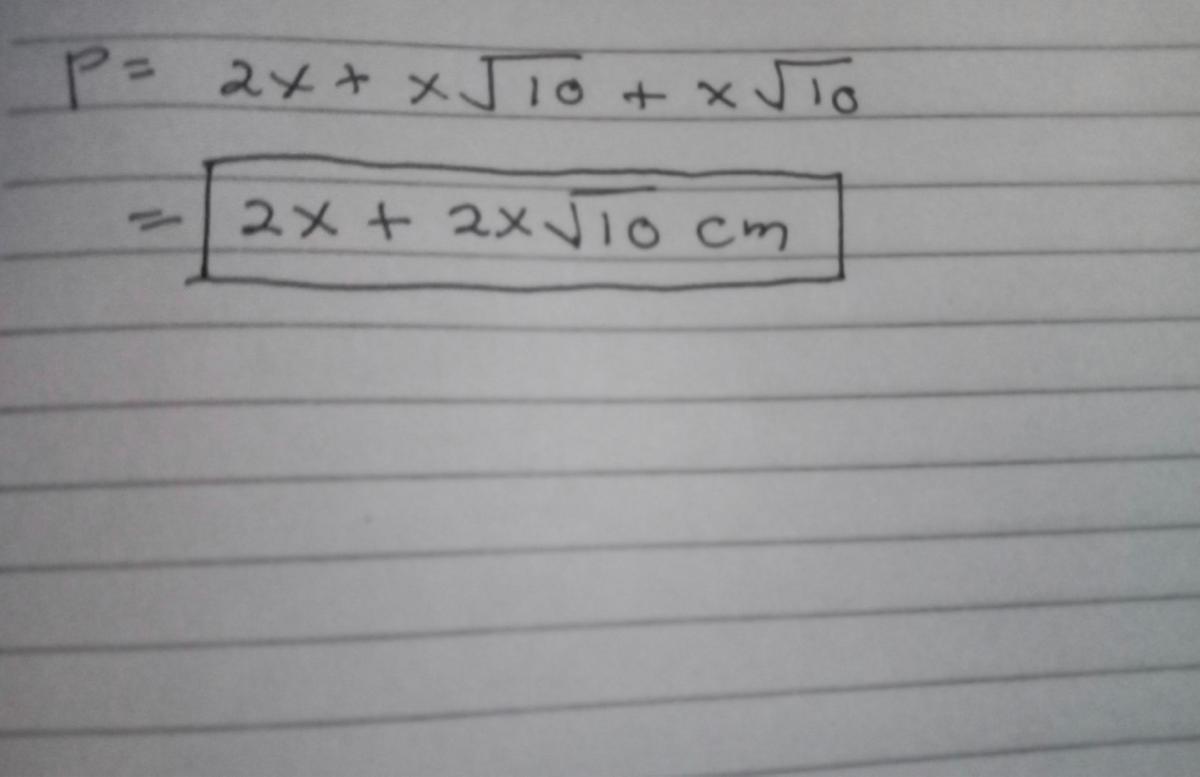 P = 2x + x√10 + x√10
= 2x + 2x√10 cm